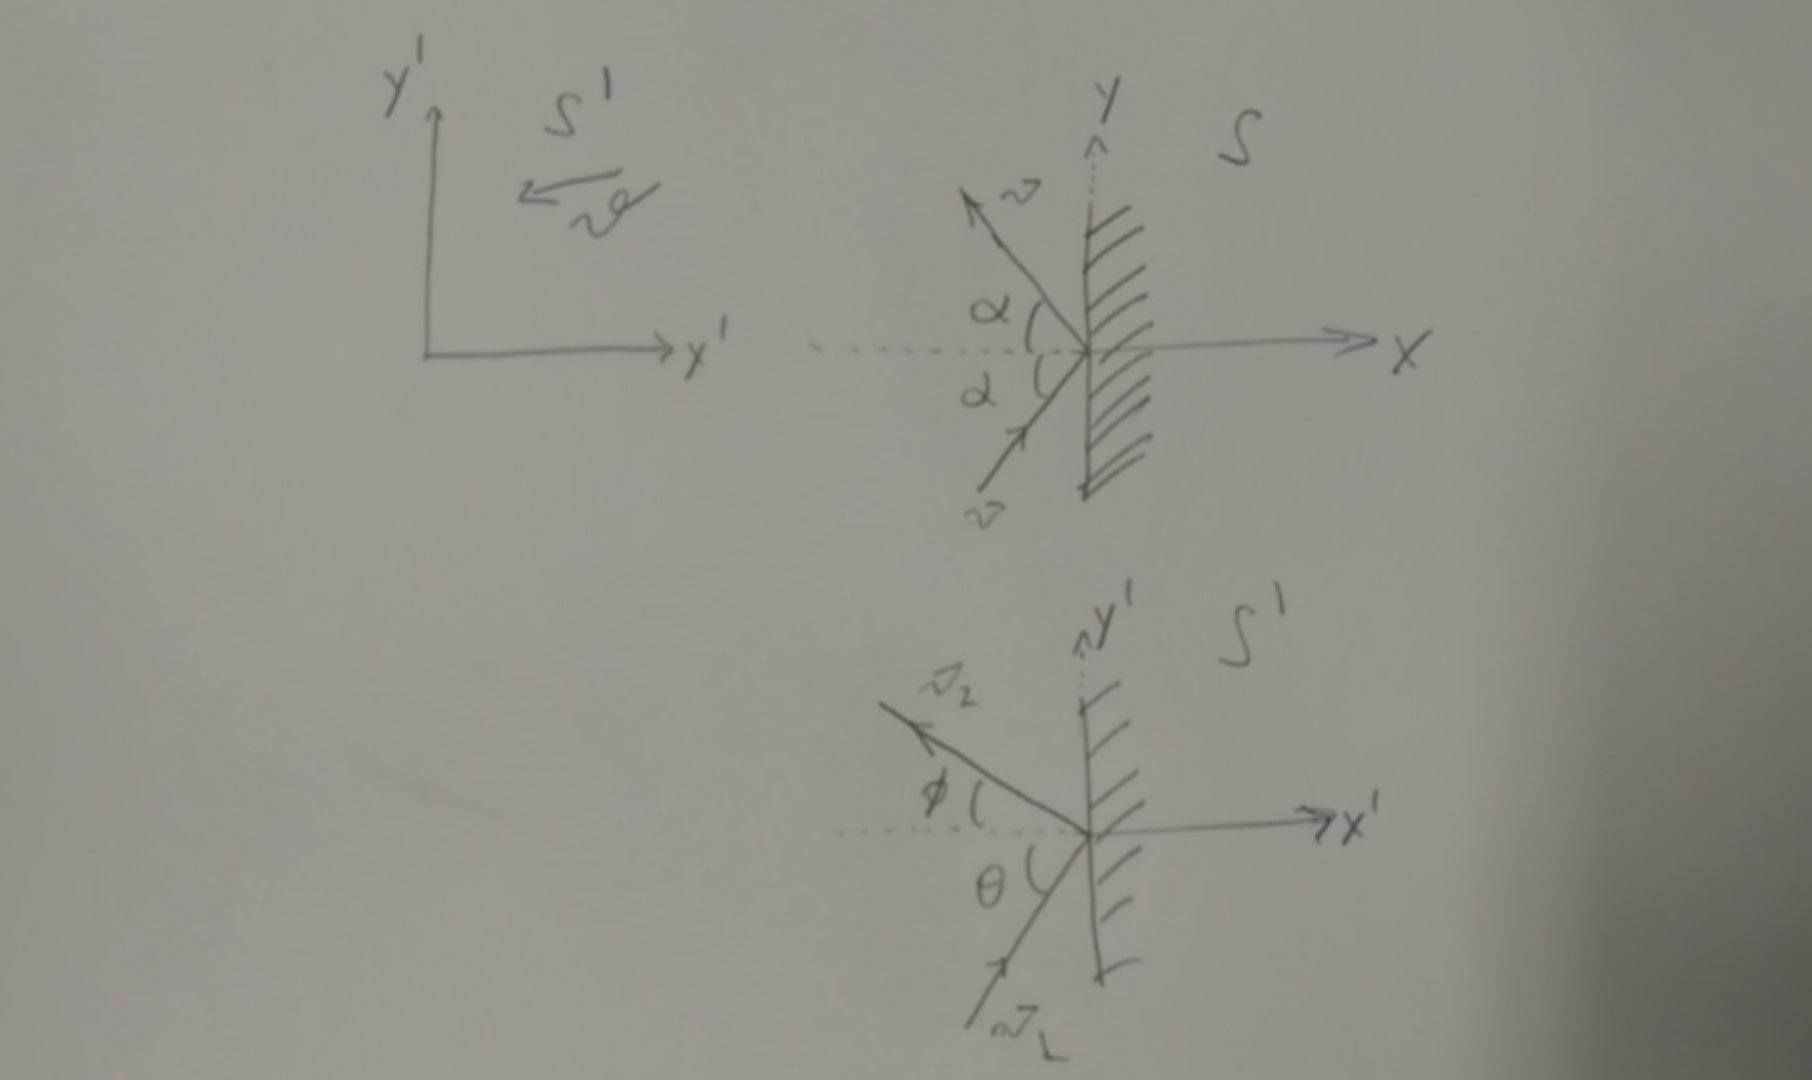 y'
S'
v
x'
y
S
v
α
α
x
v
y'
S'
v₂
φ
x'
θ
v₁